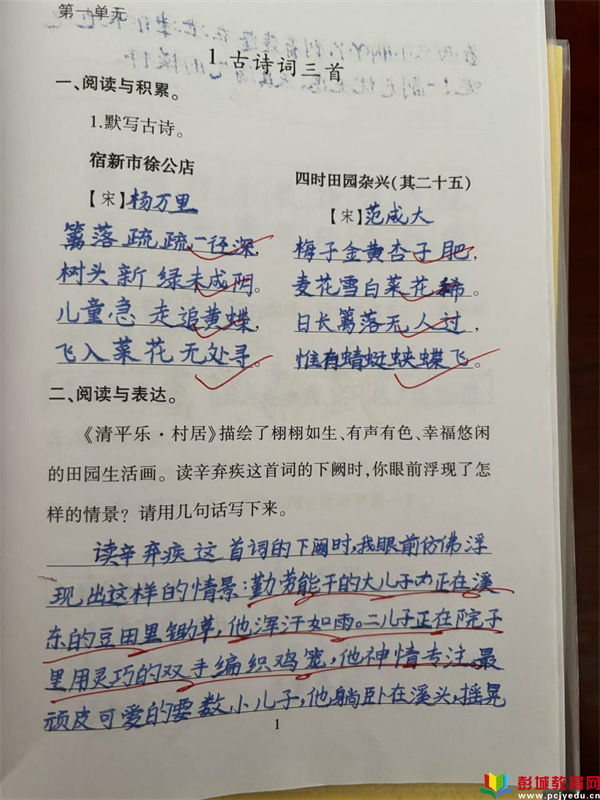 第一单元
1 古诗词三首
一、阅读与积累。
1.默写古诗。
宿新市徐公店
【宋】杨万里
篱落疏疏一径深,
树头新绿未成阴。
儿童急走追黄蝶,
飞入菜花无处寻。
四时田园杂兴(其二十五)
【宋】范成大
梅子金黄杏子肥,
麦花雪白菜花稀。
日长篱落无人过,
惟有蜻蜓蛱蝶飞。
二、阅读与表达。
《清平乐·村居》描绘了栩栩如生、有声有色、幸福悠闲
的田园生活画。读辛弃疾这首词的下阕时,你眼前浮现了怎
样的情景?请用几句话写下来。
读辛弃疾这首词的下阕时,我眼前仿佛浮
现出这样的情景:勤劳能干的大儿子正在溪
东的豆田里锄草,他浑汗如雨。二儿子正在院子
里用灵巧的双手编织鸡笼,他神情专注。最
顽皮可爱的要数小儿子,他躺卧在溪头,摇晃
1
彭城教育网
www.pcjyedu.cn